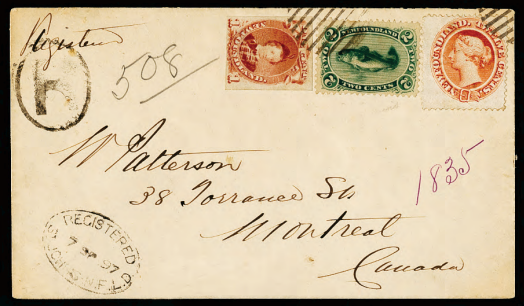 Registered
R
508
NEWFOUNDLAND
2 2
TWO CENTS
2 2
W Patterson
38 Torrance St
Montreal
Canada
1835
REGISTERED
7 SP 97
ST JOHN'S N.F.L.D.